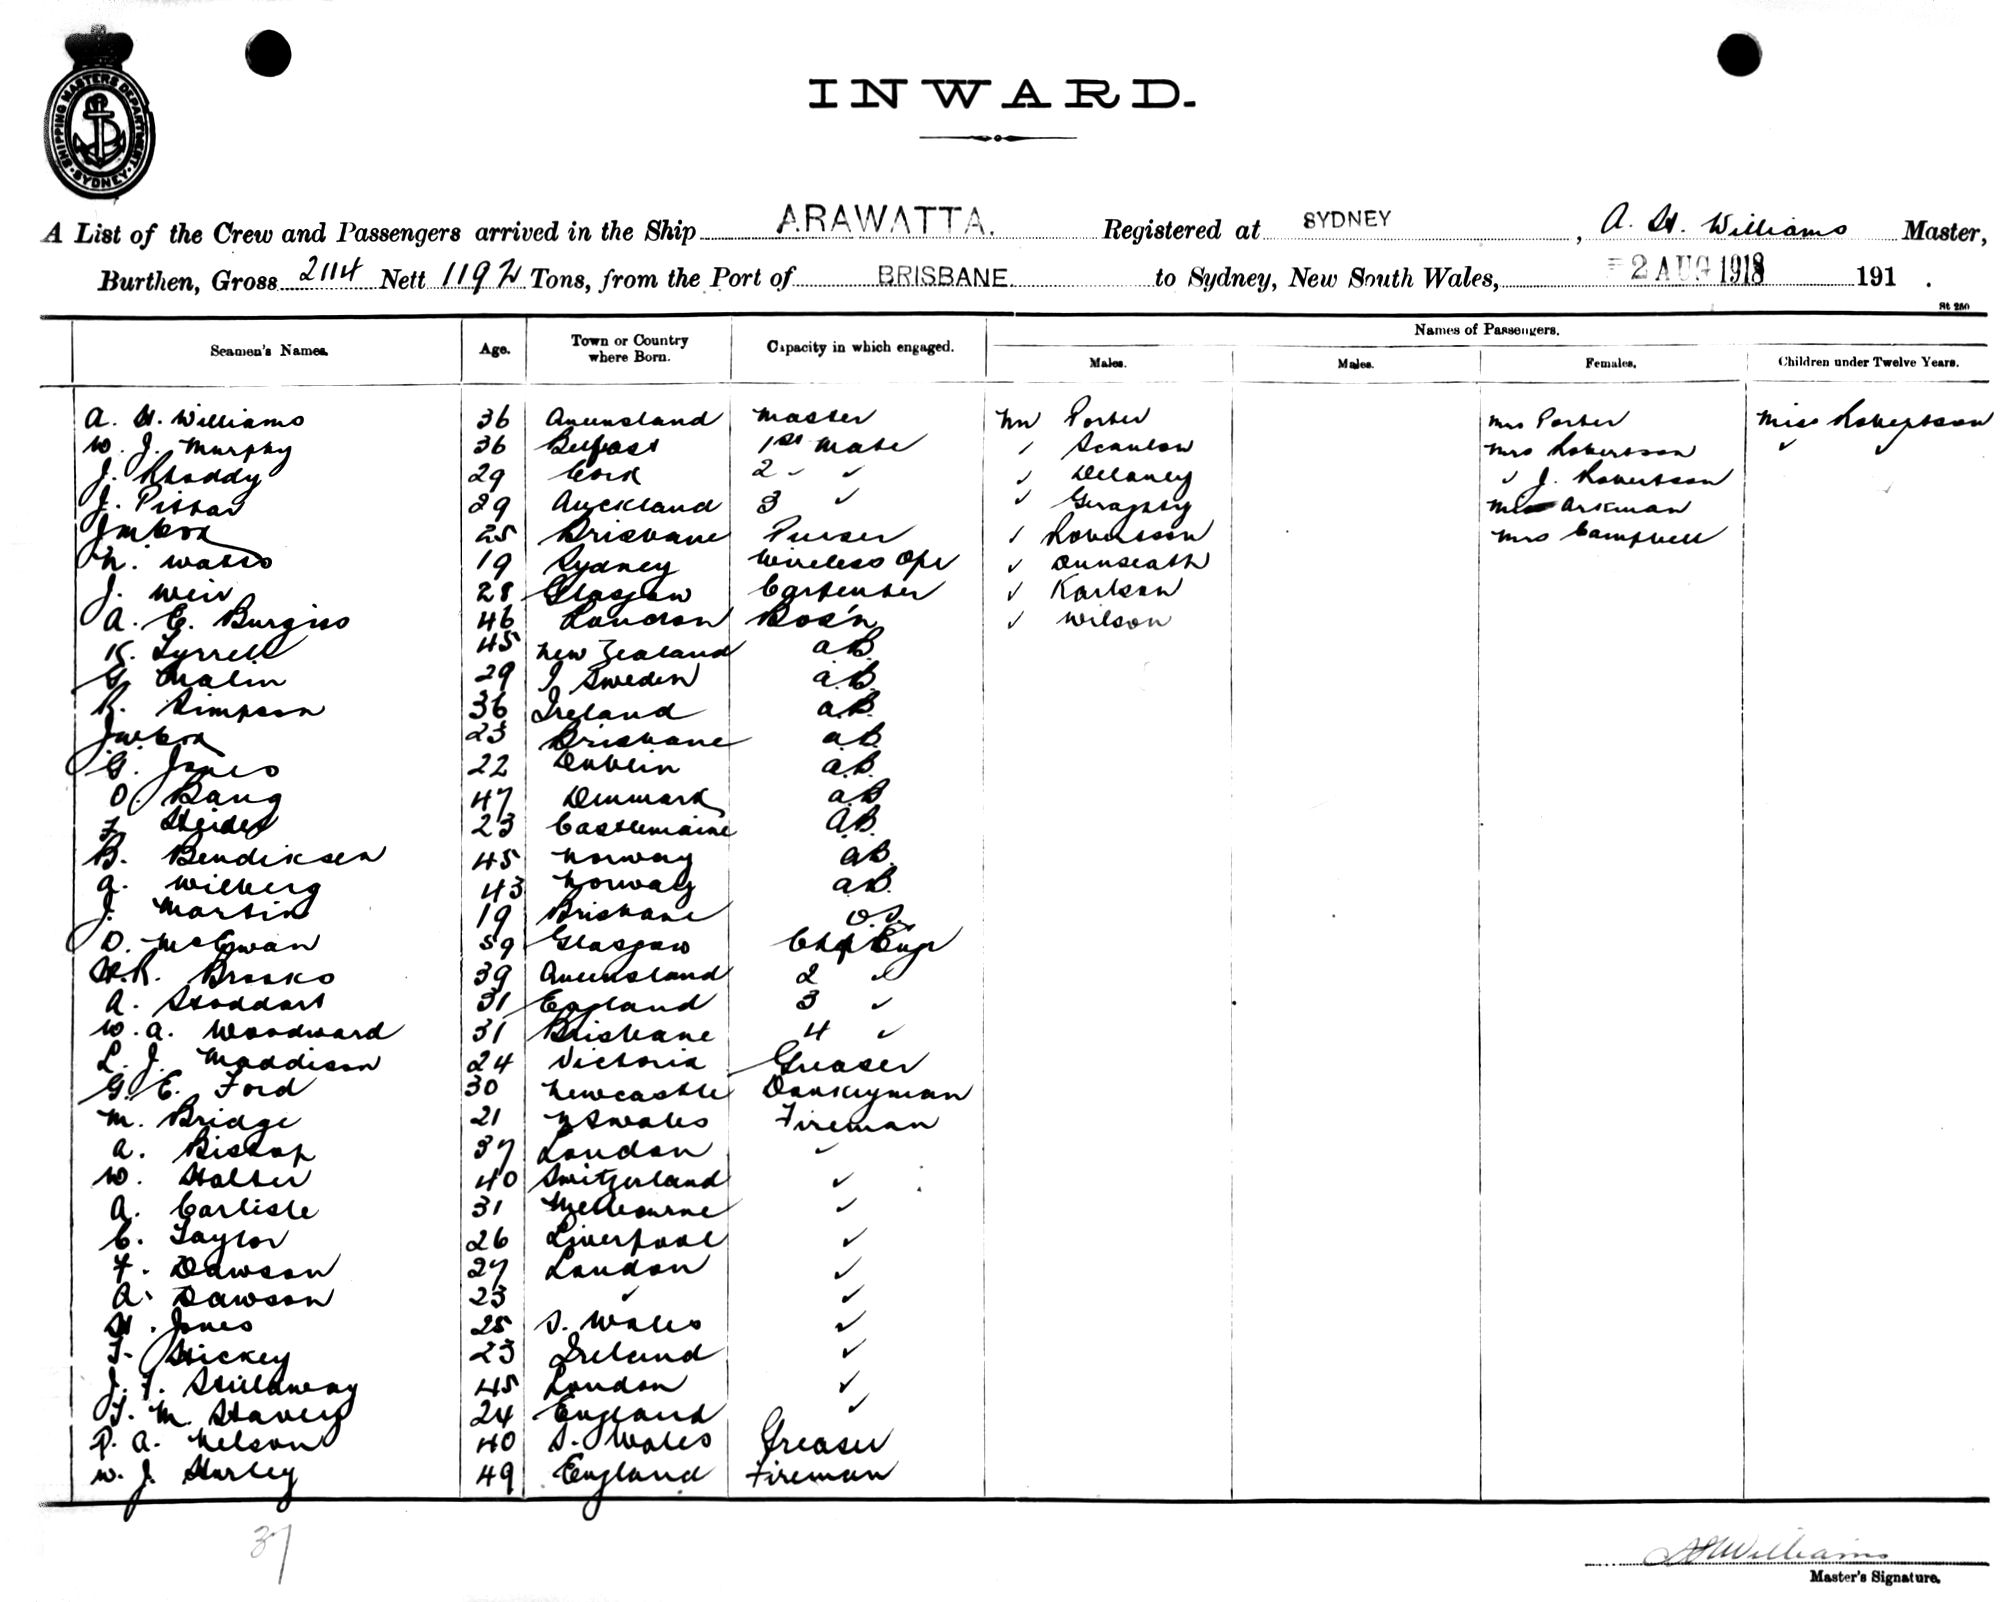 SHIPPING MASTERS DEPARTMENT. SYDNEY.
INWARD.
A List of the Crew and Passengers arrived in the Ship ARAWATTA. Registered at SYDNEY, A. H. Williams Master,
Burthen, Gross 2114 Nett 1192 Tons, from the Port of BRISBANE. to Sydney, New South Wales, 2 AUG 1918 191 .
St 250
Names of Passengers.
Seamen's Names. Age. Town or Country where Born. Capacity in which engaged. Males. Males. Females. Children under Twelve Years.
A. H. Williams 36 Queensland Master Mr Porter Mrs Porter Miss Robertson
W. J. Murphy 36 Belfast 1st Mate ✓ Scanlon Mrs Robertson ✓ ✓
J. Rhoddy 29 Cork 2 ✓ ✓ ✓ Delaney ✓ J. Robertson
J. Pittar 29 Auckland 3 ✓ ✓ Geraghty Arkman
J M Cox 25 Brisbane Purser ✓ Robertson Mrs Campbell
N. Watts 19 Sydney Wireless Opr ✓ Dunseath
J. Weir 28 Glasgow Carpenter ✓ Karlson
A. E. Burgiss 46 London Bos'n ✓ Wilson
K. Tyrrell 45 New Zealand A.B.
G. Malin 29 Sweden A.B.
R. Simpson 36 Ireland A.B.
J W Cox 23 Brisbane A.B.
G. Jones 22 Dublin A.B.
O. Bang 47 Denmark A.B
23 Castlemaine A.B.
B. Bendiksen 45 Norway A.B.
A. Wilberg 43 Norway A.B.
J. Martin 19 Brisbane O.S.
D. McEwan 59 Glasgow Chf Engr
H. R. Brooks 39 Queensland 2 ✓
A. Stoddart 31 England 3 ✓
W. A. Woodward 31 Brisbane 4 ✓
L. J. Maddison 24 Victoria Greaser
G. E. Ford 30 Newcastle Donkeyman
M. Bridge 21 N S Wales Fireman
A. Bishop 37 London ✓
W. Halter 40 Switzerland ✓
A. Carlisle 31 Melbourne ✓
C. Taylor 26 Liverpool ✓
F. Dawson 27 London ✓
A. Dawson 23 ✓ ✓
H. Jones 25 S. Wales ✓
T. Hickey 23 Ireland ✓
J. T. Stillaway 45 London ✓
T. M. Stavers 24 England ✓
P. A. Nelson 40 S. Wales Greaser
W. J. Hurley 49 England Fireman
37
A H Williams
Master's Signature.